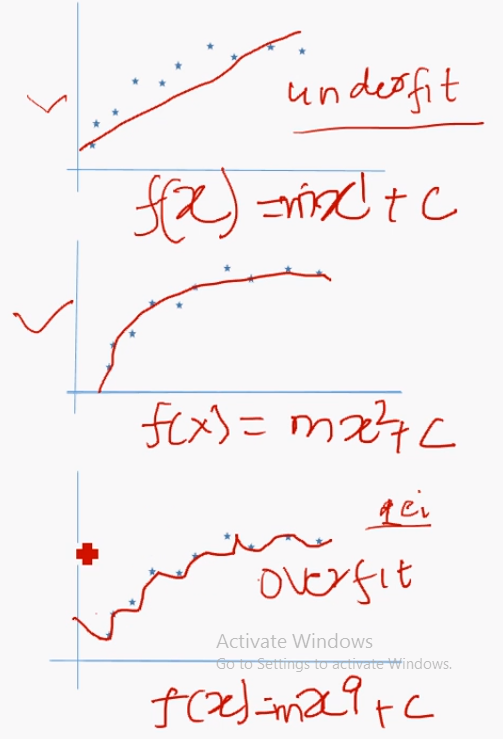 underfit
f(x) = mx¹ + c
f(x) = mx² + c
overfit
Activate Windows
Go to Settings to activate Windows.
f(x) = mx⁹ + c